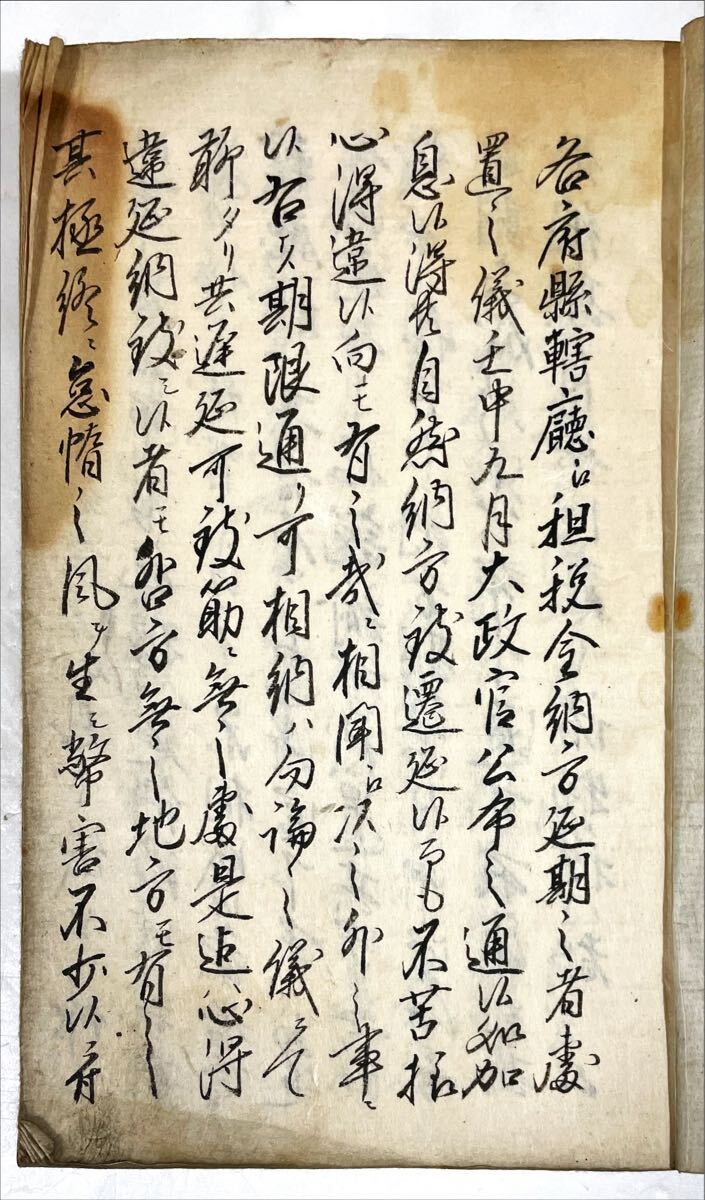 各府縣轄廳ゟ租税金納方延期之者處
置之儀壬申九月大政官公布之通候処加
息候得共自然納方致遷延候而も不苦抔
心得違候向モ有之哉ニ相聞ヘ以之外之事ニ
候右ハ期限通リ可相納ハ勿論之儀ニテ
聊タリ共遅延可致筋ニ無之處是迠心得
違延納致シ候者モ咎方無之地方モ有之
其極終ニ怠惰之風ヲ生シ幣害不少候ニ付